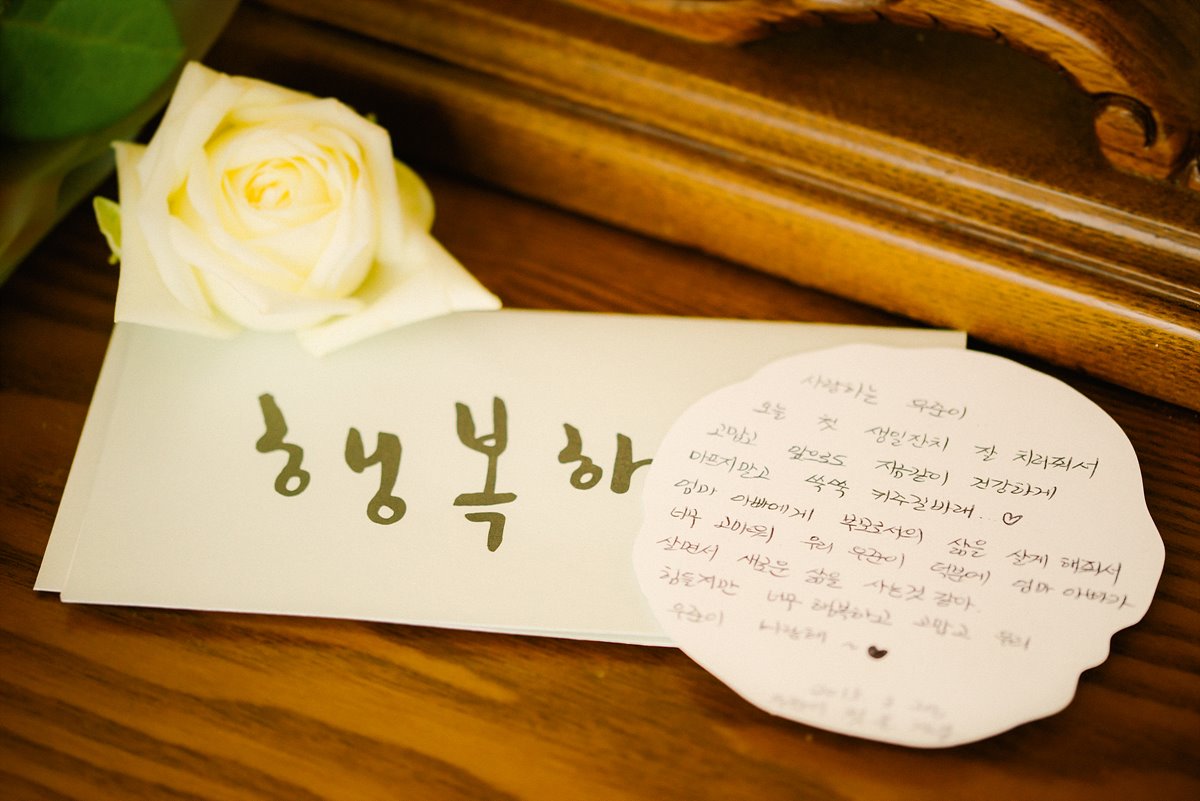 행복하
사랑하는 우준이
오늘 첫 생일잔치 잘 치러줘서
고맙고 앞으로도 지금같이 건강하게
아프지말고 쑥쑥 커주길바래.. ♡
엄마 아빠에게 부모로서의 삶을 살게 해줘서
너무 고마워 우리 우준이 덕분에 엄마 아빠가
살면서 새로운 삶을 사는것 같아.
힘들지만 너무 행복하고 고맙고 우리
우준이 사랑해 ~ ♥